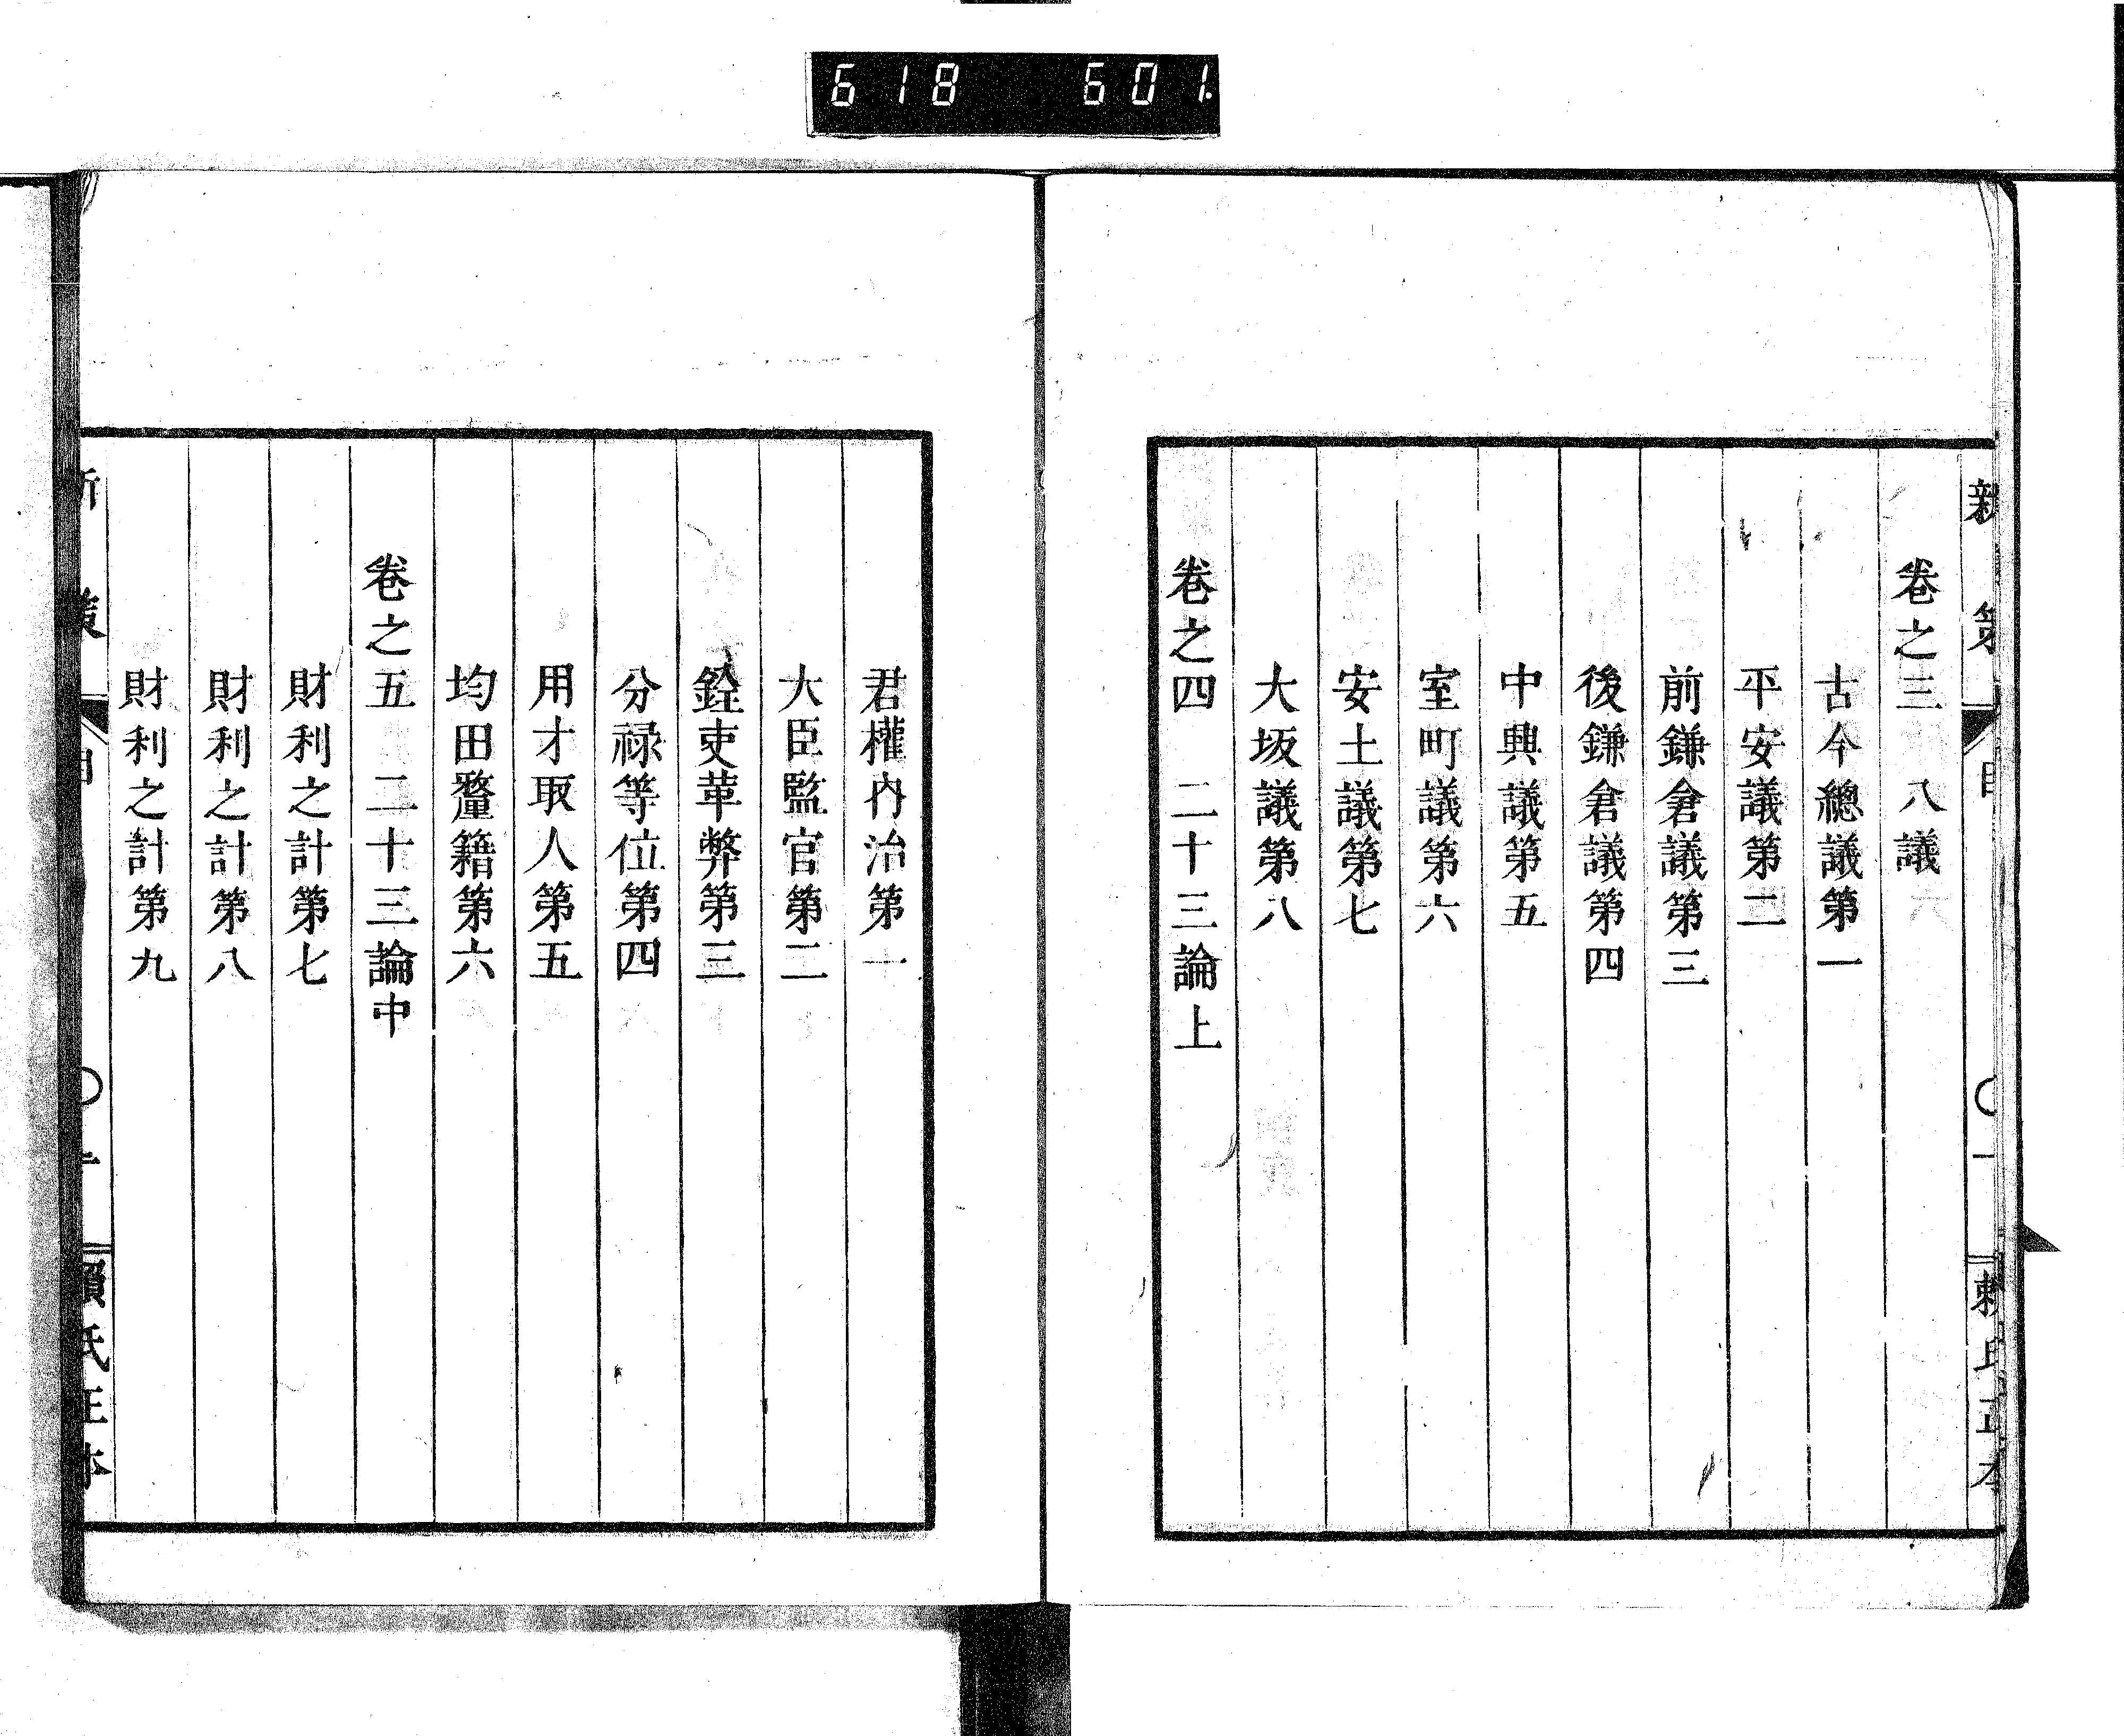 618 601
新策
賴氏正本
卷之三 八議
古今總議第一
平安議第二
前鎌倉議第三
後鎌倉議第四
中興議第五
室町議第六
安土議第七
大坂議第八
卷之四 二十三論上
君權內治第一
大臣監官第二
銓吏革弊第三
分祿等位第四
用才取人第五
均田釐籍第六
卷之五 二十三論中
財利之計第七
財利之計第八
財利之計第九
新策
賴氏正本